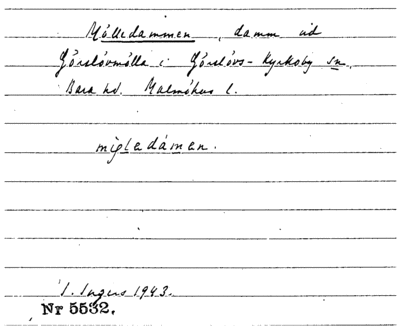 Mölledammen, damm vid
Görslövmölla i Görslövs-Kyrkoby sn,
Bara hd. Malmöhus l.
mø̨ledámen.
I. Ingers 1943.
Nr 5532.